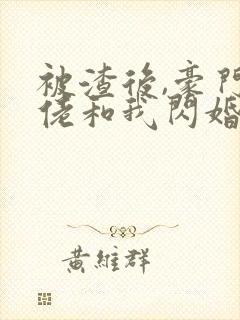 被渣後,豪門
佬和我閃婚
黃維群